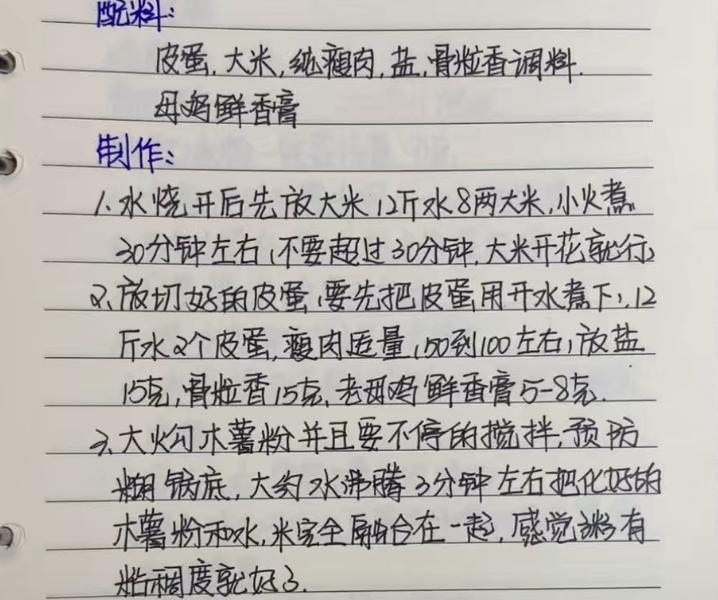 配料:
皮蛋,大米,纯瘦肉,盐,骨粒香调料.
母鸡鲜香膏
制作:
1、水烧开后先放大米,12斤水8两大米,小火煮
30分钟左右,不要超过30分钟,大米开花就行,
2、放切好的皮蛋,要先把皮蛋用开水煮下,12
斤水2个皮蛋,瘦肉适量,50到100左右,放盐
15克,骨粒香15克,老母鸡鲜香膏5-8克.
3、大火勾木薯粉并且要不停的搅拌,预防
糊锅底,大约水沸腾3分钟左右把化好的
木薯粉和水,米完全融合在一起,感觉粥有
粘稠度就好了.